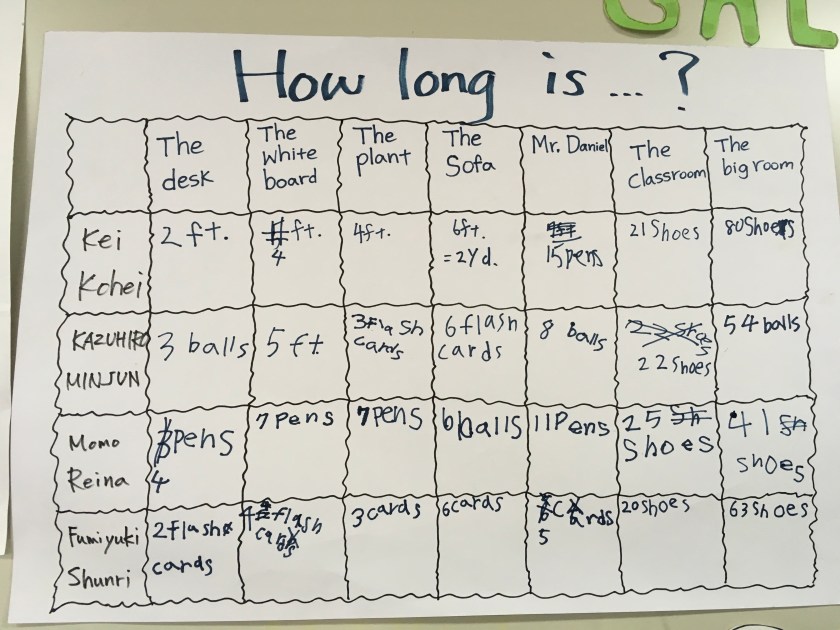 GAL
How long is ... ?
The desk
The white board
The plant
The Sofa
Mr. Daniel
The classroom
The big room
Kei Kohei
2 ft.
4 ft.
4ft.
6ft. =2Yd.
15pens
21 Shoes
80 Shoes
KAZUHIRO MINJUN
3 balls
5 ft
3flash cards
6 flash cards
8 balls
22 Shoes
54 balls
Momo Reina
4 pens
7 pens
7pens
6balls
11Pens
25 shoes
41 shoes
Fumiyuki Shunri
2flash cards
4 flash cards
3 cards
6cards
5 cards
20 shoes
63 Shoes